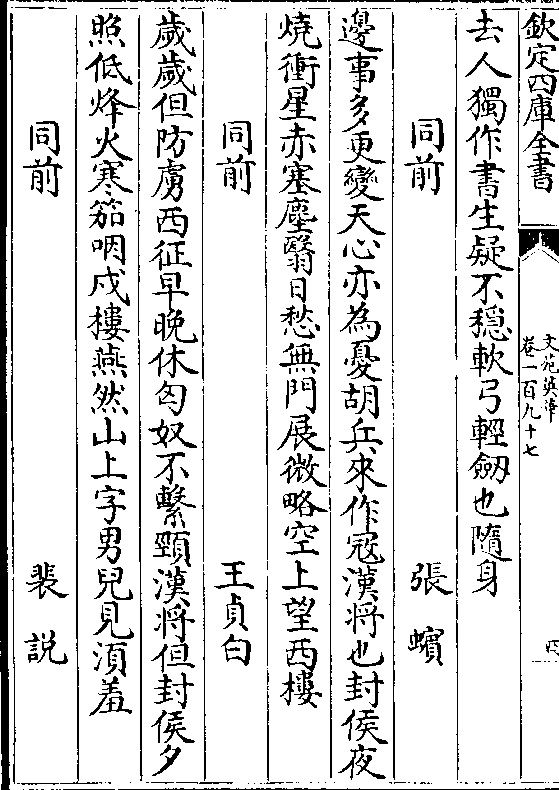 欽定四庫全書
文苑英華
卷一百九十七
四
去人獨作書生疑不穩軟弓輕劒也隨身
同前 張蠙
邊事多更變天心亦為憂胡兵來作冦漢將也封侯夜
燒衝星赤塞塵翳日愁無門展微略空上望西樓
同前 王貞白
歲歲但防虜西征早晚休匈奴不繫頸漢將但封侯夕
照低烽火寒笳咽戍樓燕然山上字男兒見須羞
同前 裴説